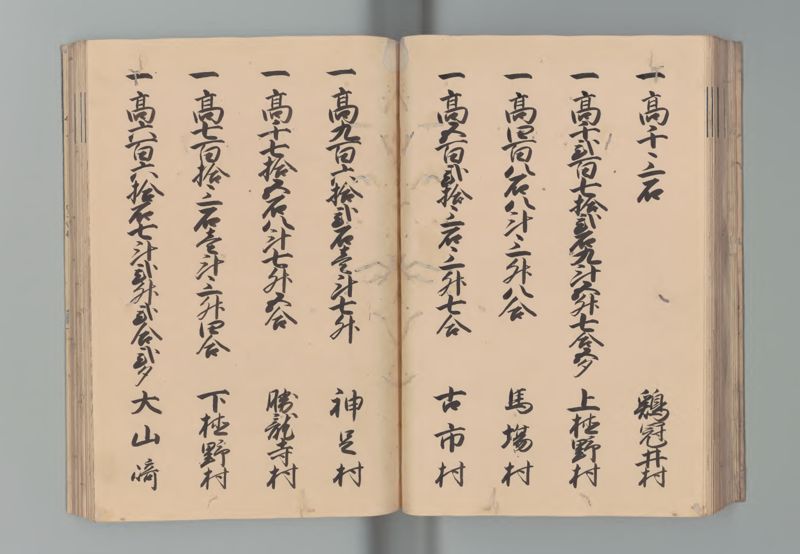 一 高千三石 鶏冠井村
一 高千弐百七拾弐石九斗六升七合五夕 上植野村
一 高四百八石八斗三升八合 馬場村
一 高五百弐拾三石三升七合 古市村
一 高九百六拾弐石壱斗七升 神足村
一 高千七拾五石八斗七升五合 勝龍寺村
一 高七百拾三石壱斗三升四合 下植野村
一 高六百六拾石七斗弐升弐合弐夕 大山崎